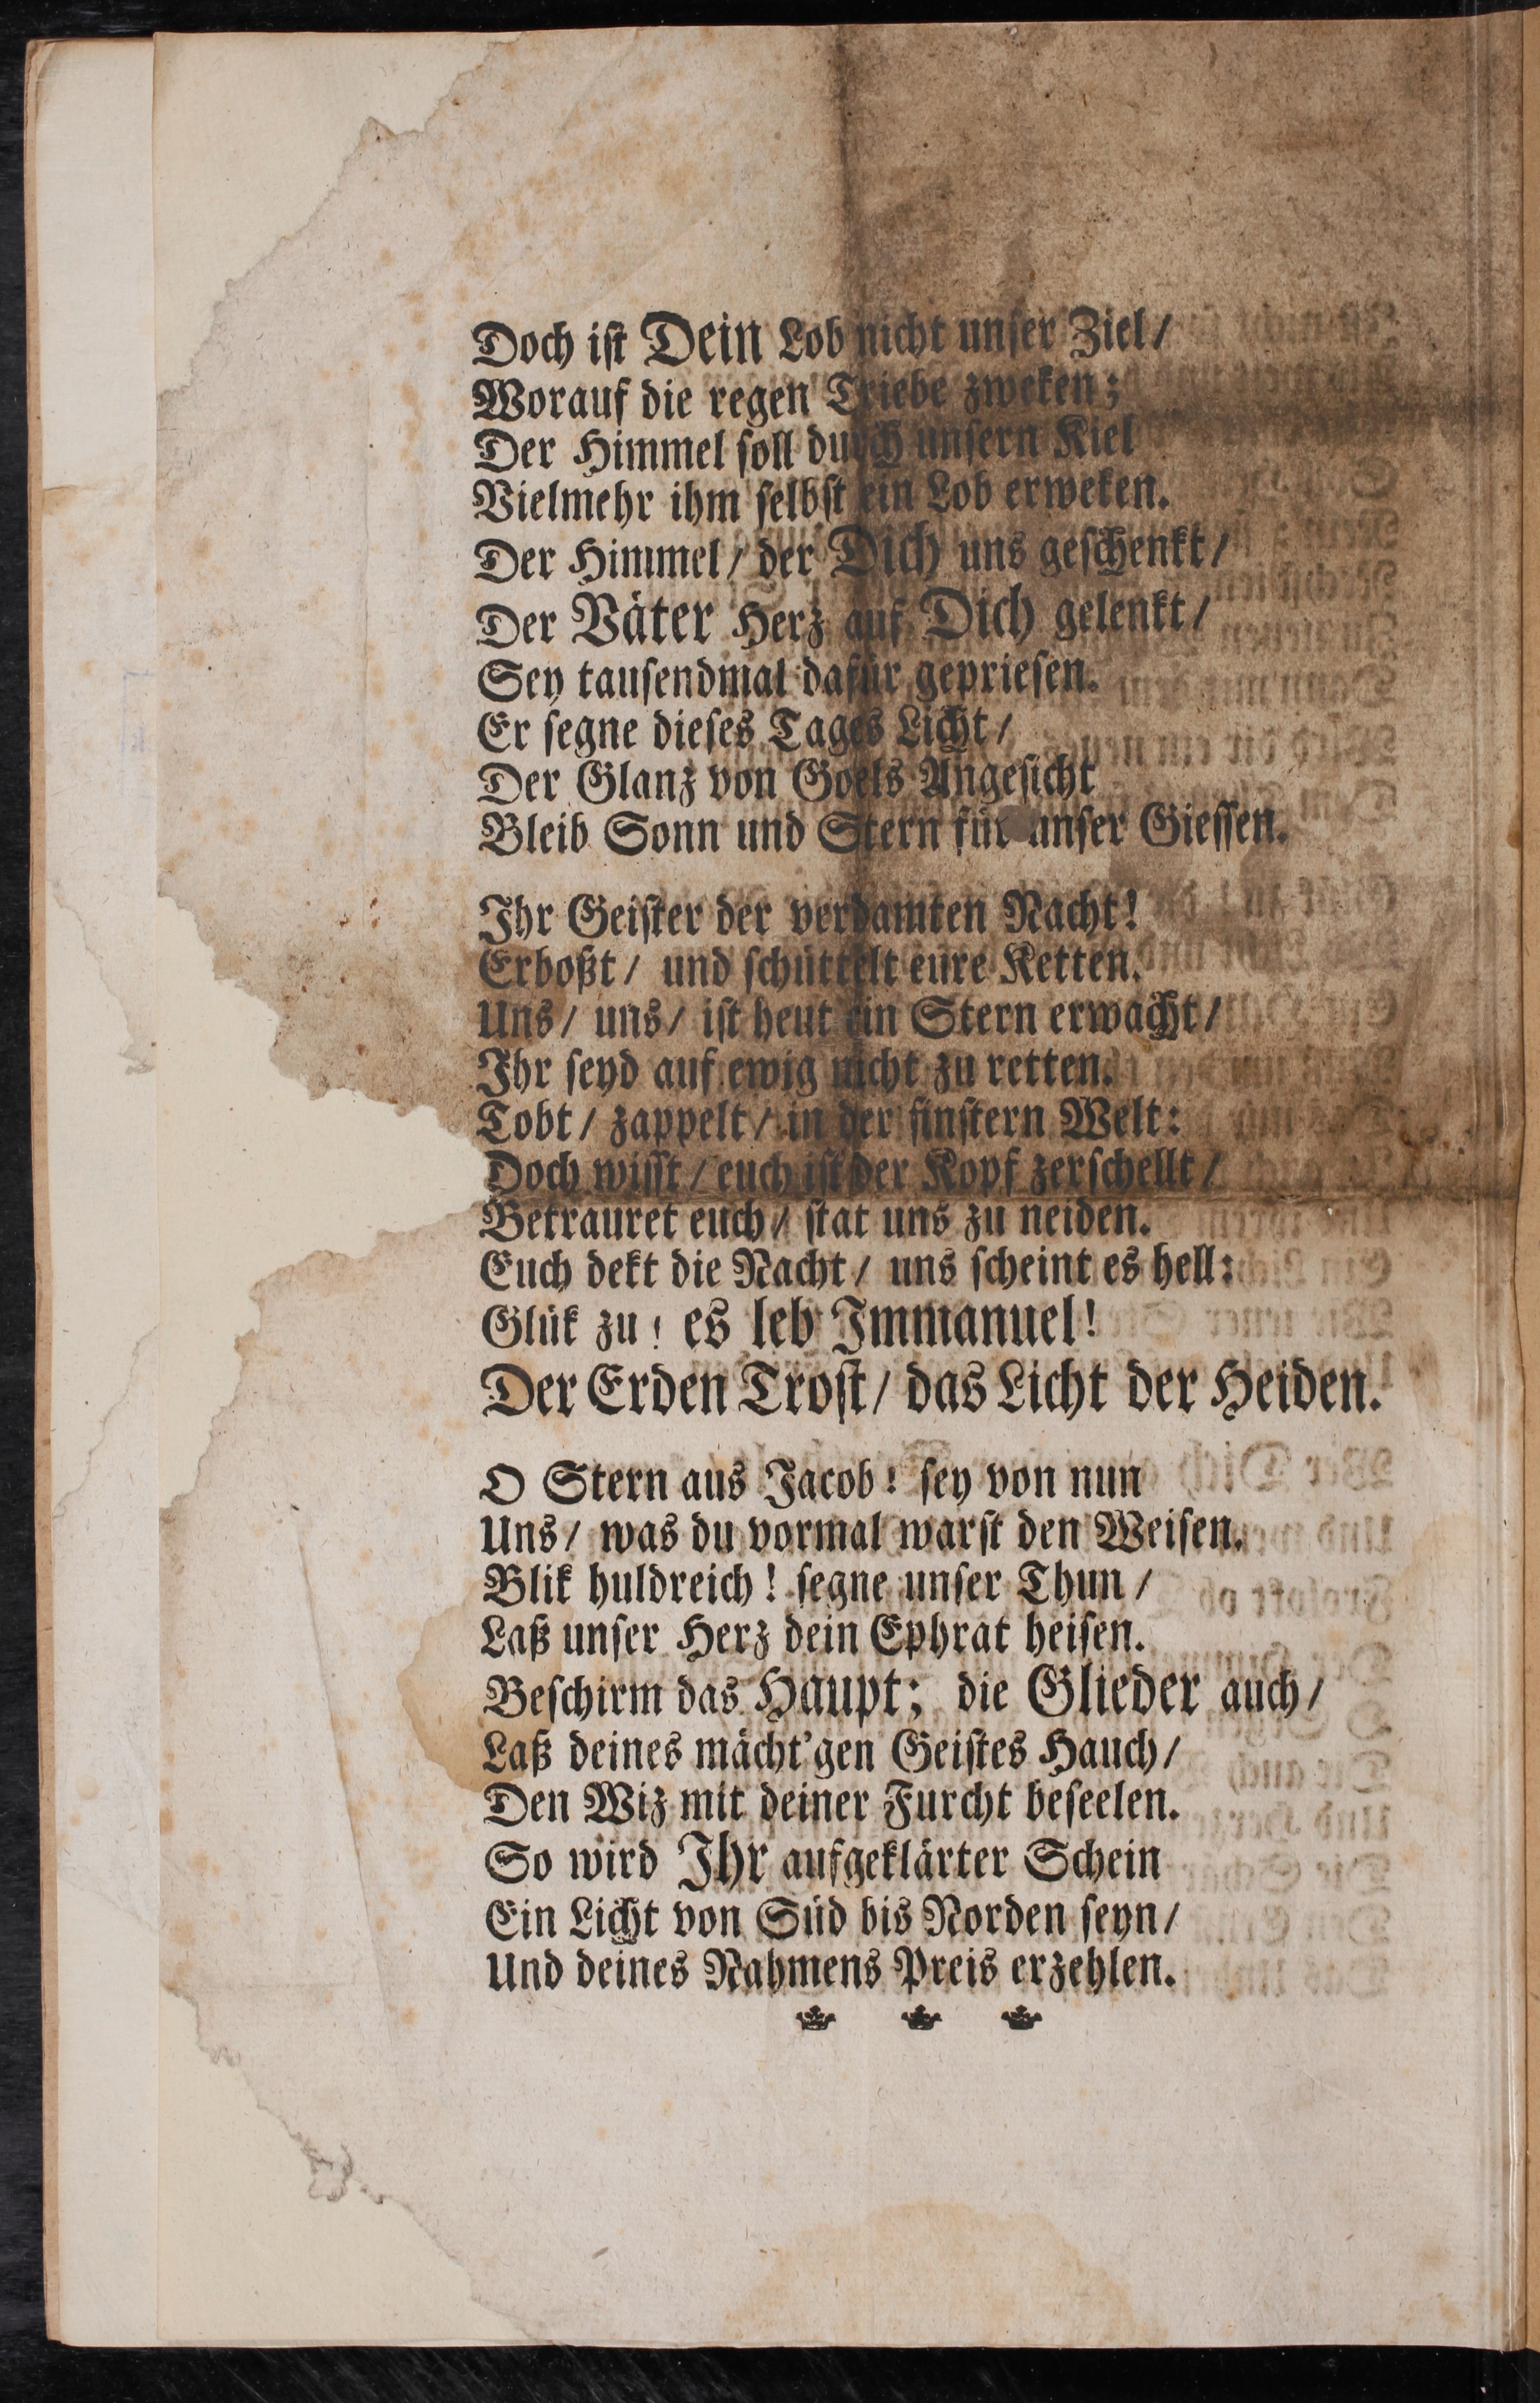 Doch ist Dein Lob nicht unser Ziel/
Worauf die regen Triebe zweken;
Der Himmel soll durch unsern Kiel
Vielmehr ihm selbst ein Lob erweken.
Der Himmel/ der Dich uns geschenkt/
Der Väter Herz auf Dich gelenkt/
Sey tausendmal dafür gepriesen.
Er segne dieses Tages Licht/
Der Glanz von Goels Angesicht
Bleib Sonn und Stern für unser Giessen.
Ihr Geister der verdamten Nacht!
Erboßt/ und schüttelt eure Ketten.
Uns/ uns/ ist heut ein Stern erwacht/
Ihr seyd auf ewig nicht zu retten.
Tobt/ zappelt/ in der finstern Welt:
Doch wisst/ euch ist der Kopf zerschellt/
Betrauret euch/ stat uns zu neiden.
Euch dekt die Nacht/ uns scheint es hell:
Glük zu! es leb Immanuel!
Der Erden Trost/ das Licht der Heiden.
O Stern aus Jacob! sey von nun
Uns/ was du vormal warst den Weisen.
Blik huldreich! segne unser Thun/
Laß unser Herz dein Ephrat heisen.
Beschirm das Haupt; die Glieder auch/
Laß deines mächt'gen Geistes Hauch/
Den Wiz mit deiner Furcht beseelen.
So wird Ihr aufgeklärter Schein
Ein Licht von Süd bis Norden seyn/
Und deines Nahmens Preis erzehlen.